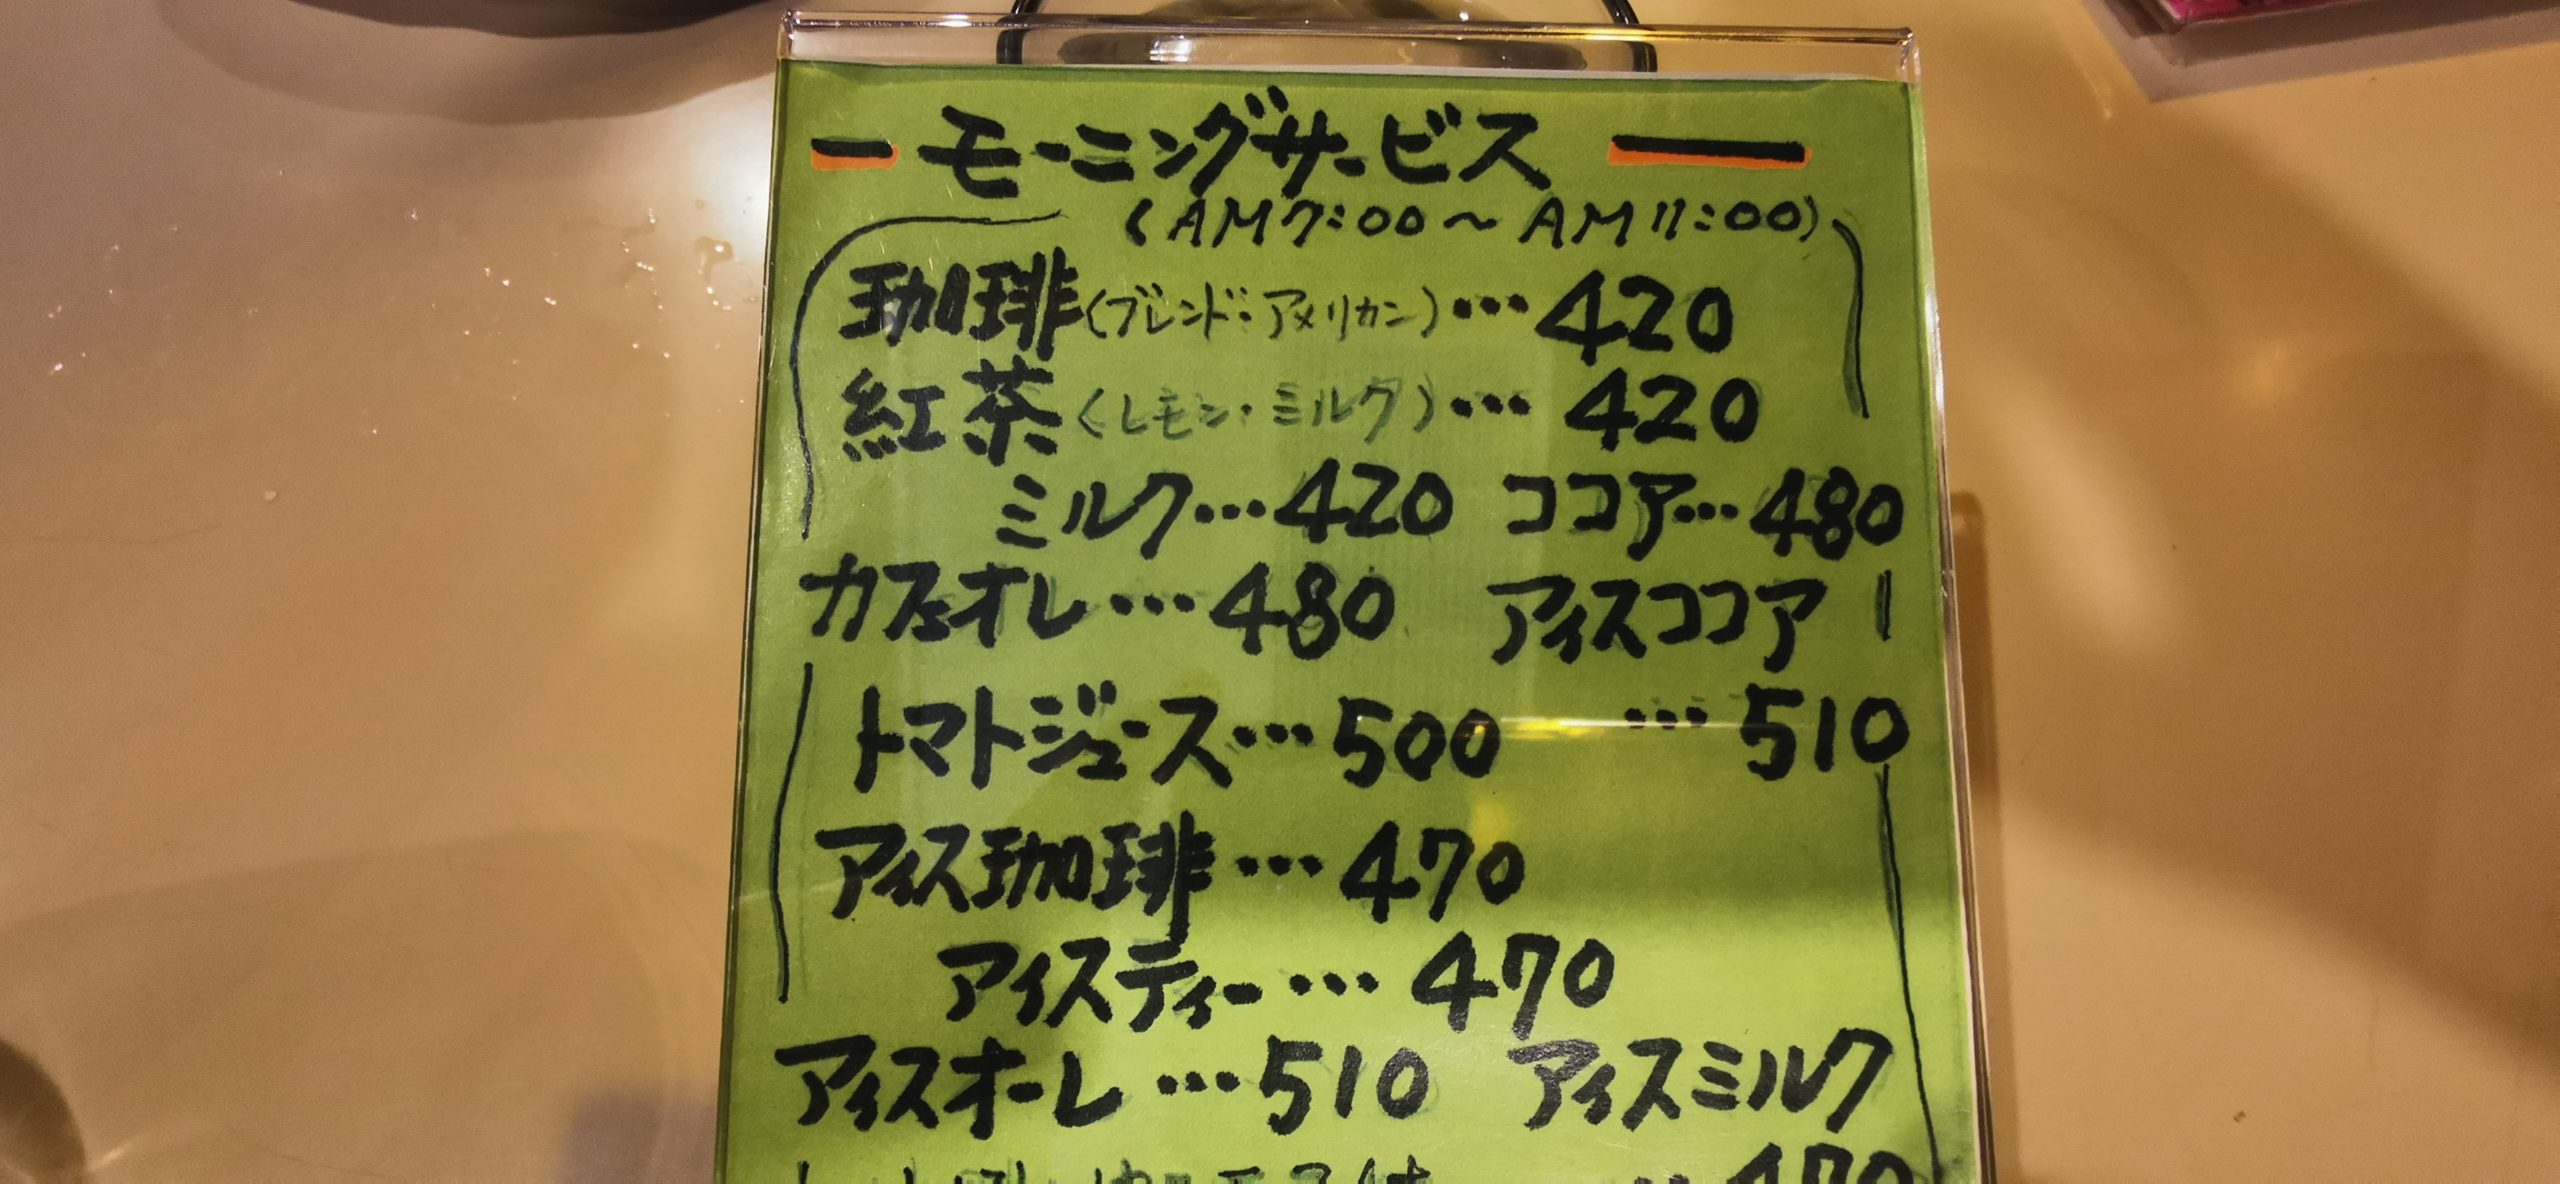 モーニングサービス
(AM7:00～AM11:00)
珈琲(ブレンド・アメリカン)…420
紅茶(レモン・ミルク)…420
ミルク…420 ココア…480
カフェオレ…480 アイスココア
トマトジュース…500 …510
アイス珈琲…470
アイスティー…470
アイスオーレ…510 アイスミルク
…470